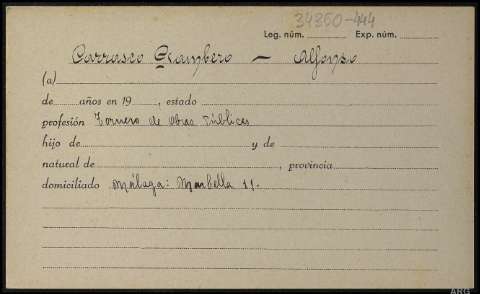 34350-444
Leg. núm. Exp. núm.
Carrasco Gambero - Alfonso
(a)
de años en 19 , estado
profesión Tornero de Obras Públicas
hijo de y de
natural de , provincia
domiciliado Málaga: Marbella 11.
ARG